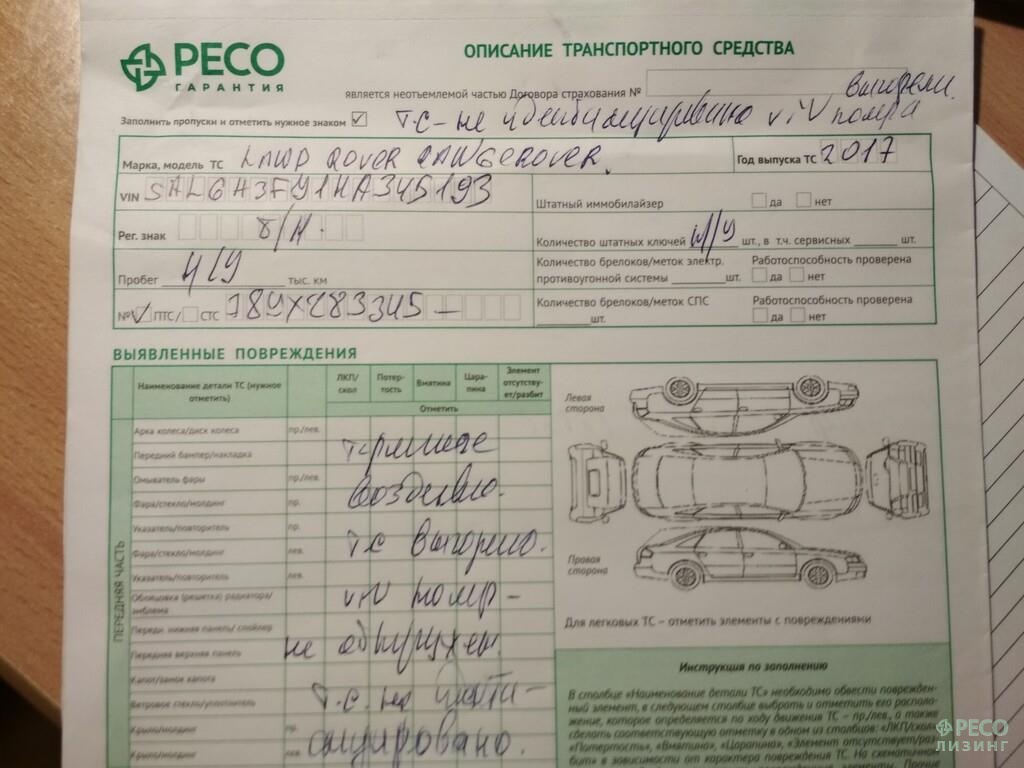 РЕСО
ГАРАНТИЯ
ОПИСАНИЕ ТРАНСПОРТНОГО СРЕДСТВА
является неотъемлемой частью Договора страхования №
выгорели.
Заполнить пропуски и отметить нужное знаком ☑ ТС - не идентифицировано VIN номера
Марка, модель ТС LAND ROVER RANGEROVER. Год выпуска ТС 2017
VIN SALGA3FY1HA345193
Штатный иммобилайзер да нет
Рег. знак б/н.
Количество штатных ключей н/у шт., в т.ч. сервисных шт.
Пробег н/у тыс. км
Количество брелоков/меток электр. противоугонной системы шт.
Работоспособность проверена да нет
№ ПТС/ СТС 78УХ283345 —
Количество брелоков/меток СПС шт.
Работоспособность проверена да нет
ВЫЯВЛЕННЫЕ ПОВРЕЖДЕНИЯ
Наименование детали ТС (нужное отметить)
ЛКП/скол
Потертость
Вмятина
Царапина
Элемент отсутствует/разбит
Отметить
ПЕРЕДНЯЯ ЧАСТЬ
Арка колеса/диск колеса пр./лев.
Передний бампер/накладка
Омыватель фары пр./лев.
Фара/стекло/молдинг пр.
Указатель/повторитель пр.
Фара/стекло/молдинг лев.
Указатель/повторитель лев.
Облицовка (решетка) радиатора/эмблема
Передн. нижняя панель/ спойлер
Передняя верхняя панель
Капот/замок капота
Ветровое стекло/уплотнитель
Крыло/молдинг пр.
Крыло/молдинг лев.
термическое
воздействие.
ТС выгорело.
VIN номер -
не обнаружен.
Т.С. не иденти-
фицировано.
Левая сторона
Правая сторона
Для легковых ТС – отметить элементы с повреждениями
Инструкция по заполнению
В столбце «Наименование детали ТС» необходимо обвести поврежден-
ный элемент, в следующем столбце выбрать и отметить его располо-
жение, которое определяется по ходу движения ТС – пр./лев., а также
сделать соответствующую отметку в одном из столбцов: «ЛКП/скол»,
«Потертость», «Вмятина», «Царапина», «Элемент отсутствует/раз-
бит» в зависимости от характера повреждения ТС. На схематичном
РЕСО
ЛИЗИНГ